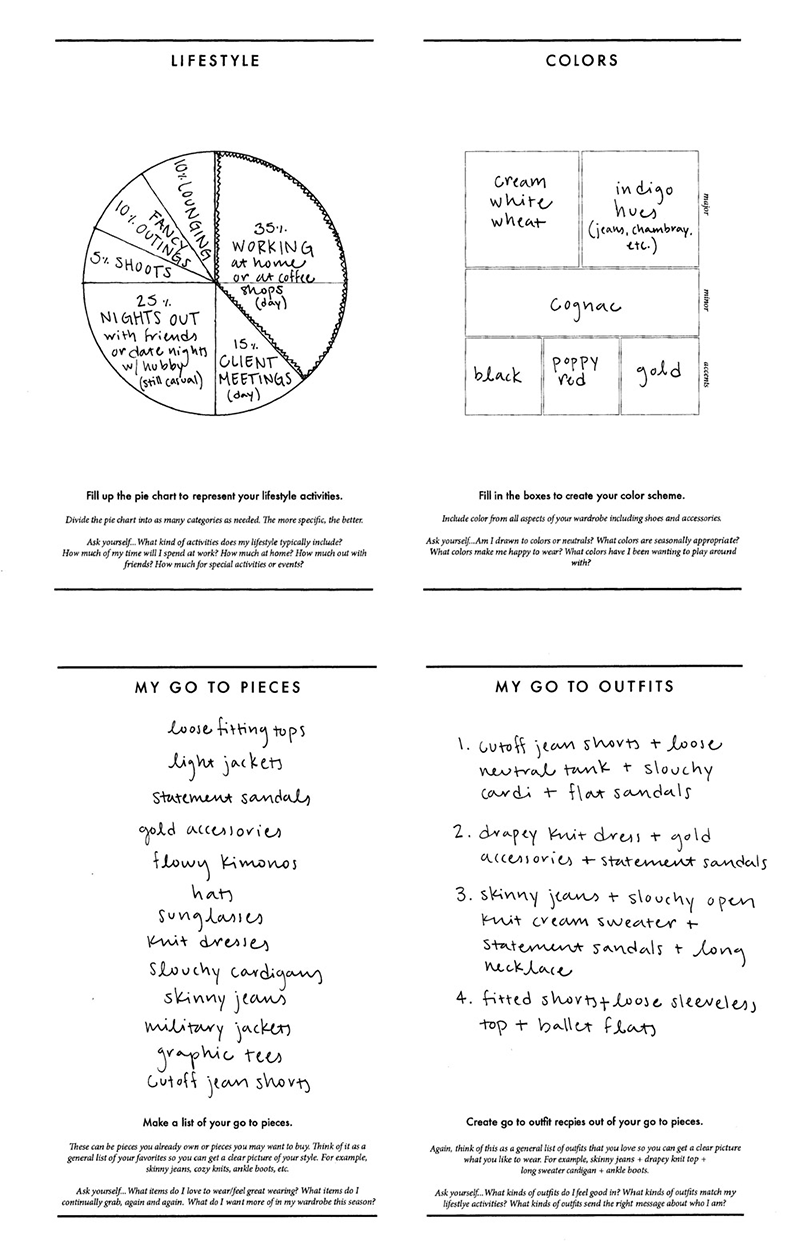 LIFESTYLE
10% LOUNGING
10% FANCY
OUTINGS
5% SHOOTS
35%
WORKING
at home
or at coffee
shops
(day)
25%
NIGHTS OUT
with friends
or date nights
w/ hubby
(still casual)
15%
CLIENT
MEETINGS
(day)
Fill up the pie chart to represent your lifestyle activities.
Divide the pie chart into as many categories as needed. The more specific, the better.
Ask yourself... What kind of activities does my lifestyle typically include?
How much of my time will I spend at work? How much at home? How much out with
friends? How much for special activities or events?
COLORS
cream
white
wheat
indigo
hues
(jeans, chambray,
etc.)
major
cognac
minor
black
poppy
red
gold
accents
Fill in the boxes to create your color scheme.
Include color from all aspects of your wardrobe including shoes and accessories.
Ask yourself...Am I drawn to colors or neutrals? What colors are seasonally appropriate?
What colors make me happy to wear? What colors have I been wanting to play around
with?
MY GO TO PIECES
loose fitting tops
light jackets
statement sandals
gold accessories
flowy kimonos
hats
sunglasses
knit dresses
slouchy cardigans
skinny jeans
military jackets
graphic tees
cutoff jean shorts
Make a list of your go to pieces.
These can be pieces you already own or pieces you may want to buy. Think of it as a
general list of your favorites so you can get a clear picture of your style. For example,
skinny jeans, cozy knits, ankle boots, etc.
Ask yourself... What items do I love to wear/feel great wearing? What items do I
continually grab, again and again. What do I want more of in my wardrobe this season?
MY GO TO OUTFITS
1. cutoff jean shorts + loose
neutral tank + slouchy
cardi + flat sandals
2. drapey knit dress + gold
accessories + statement sandals
3. skinny jeans + slouchy open
knit cream sweater +
statement sandals + long
necklace
4. fitted shorts + loose sleeveless
top + ballet flats
Create go to outfit recpies out of your go to pieces.
Again, think of this as a general list of oufits that you love so you can get a clear picture
what you like to wear. For example, skinny jeans + drapey knit top +
long sweater cardigan + ankle boots.
Ask yourself... What kinds of oufits do I feel good in? What kinds of outfits match my
lifestlye activities? What kinds of oufits send the right message about who I am?